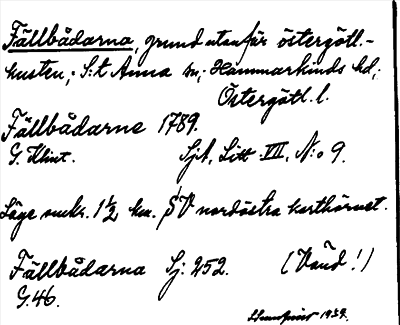 Fällbådarna, grund utanför östergötl.-
kusten; S:t Anna sn; Hammarkinds hd;
Östergötl. l.
Fällbådarne 1789.
G. Klint. Sjk. Litt. VII. N:o 9.
Läge mkr. 1 1/2 km. SV nordöstra karthörnet.
Fällbådarna Sj: 252. (Vänd!)
G. 46.
1939.